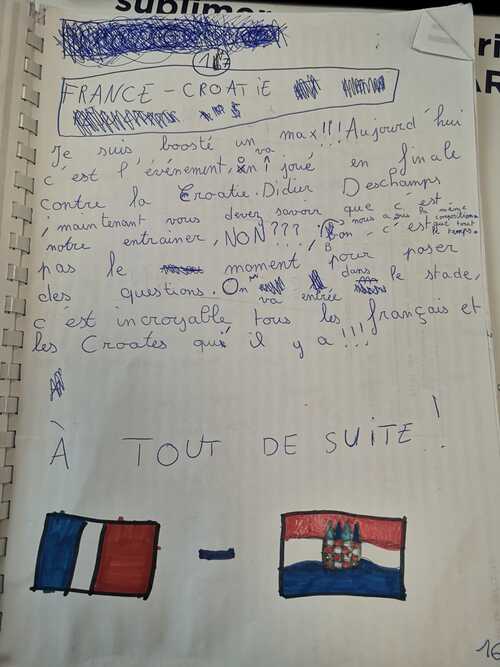 sublimer
17
FRANCE - CROATIE
Je suis boosté un max!!! Aujourd'hui
c'est l'événement, on va joué en finale
contre la Croatie. Didier Deschamps
; maintenant vous devez savoir que c'est
notre entrainer, NON??? ; Bon - c'est
nous a mis la même
composition
que tout
à temps.
pas le moment pour poser
des questions. On va entrée dans le stade,
c'est incroyable tous les français et
les Croates qui il y a!!!
À TOUT DE SUITE!
-
16